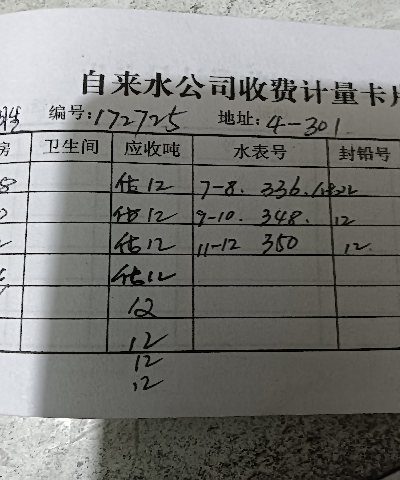 自来水公司收费计量卡片
编号:172725 地址:4-301
房 卫生间 应收吨 水表号 封铅号
8 估12 7-8. 336.
估12 9-10. 348. 12
估12 11-12 350 12.
估12
12
12
12
12